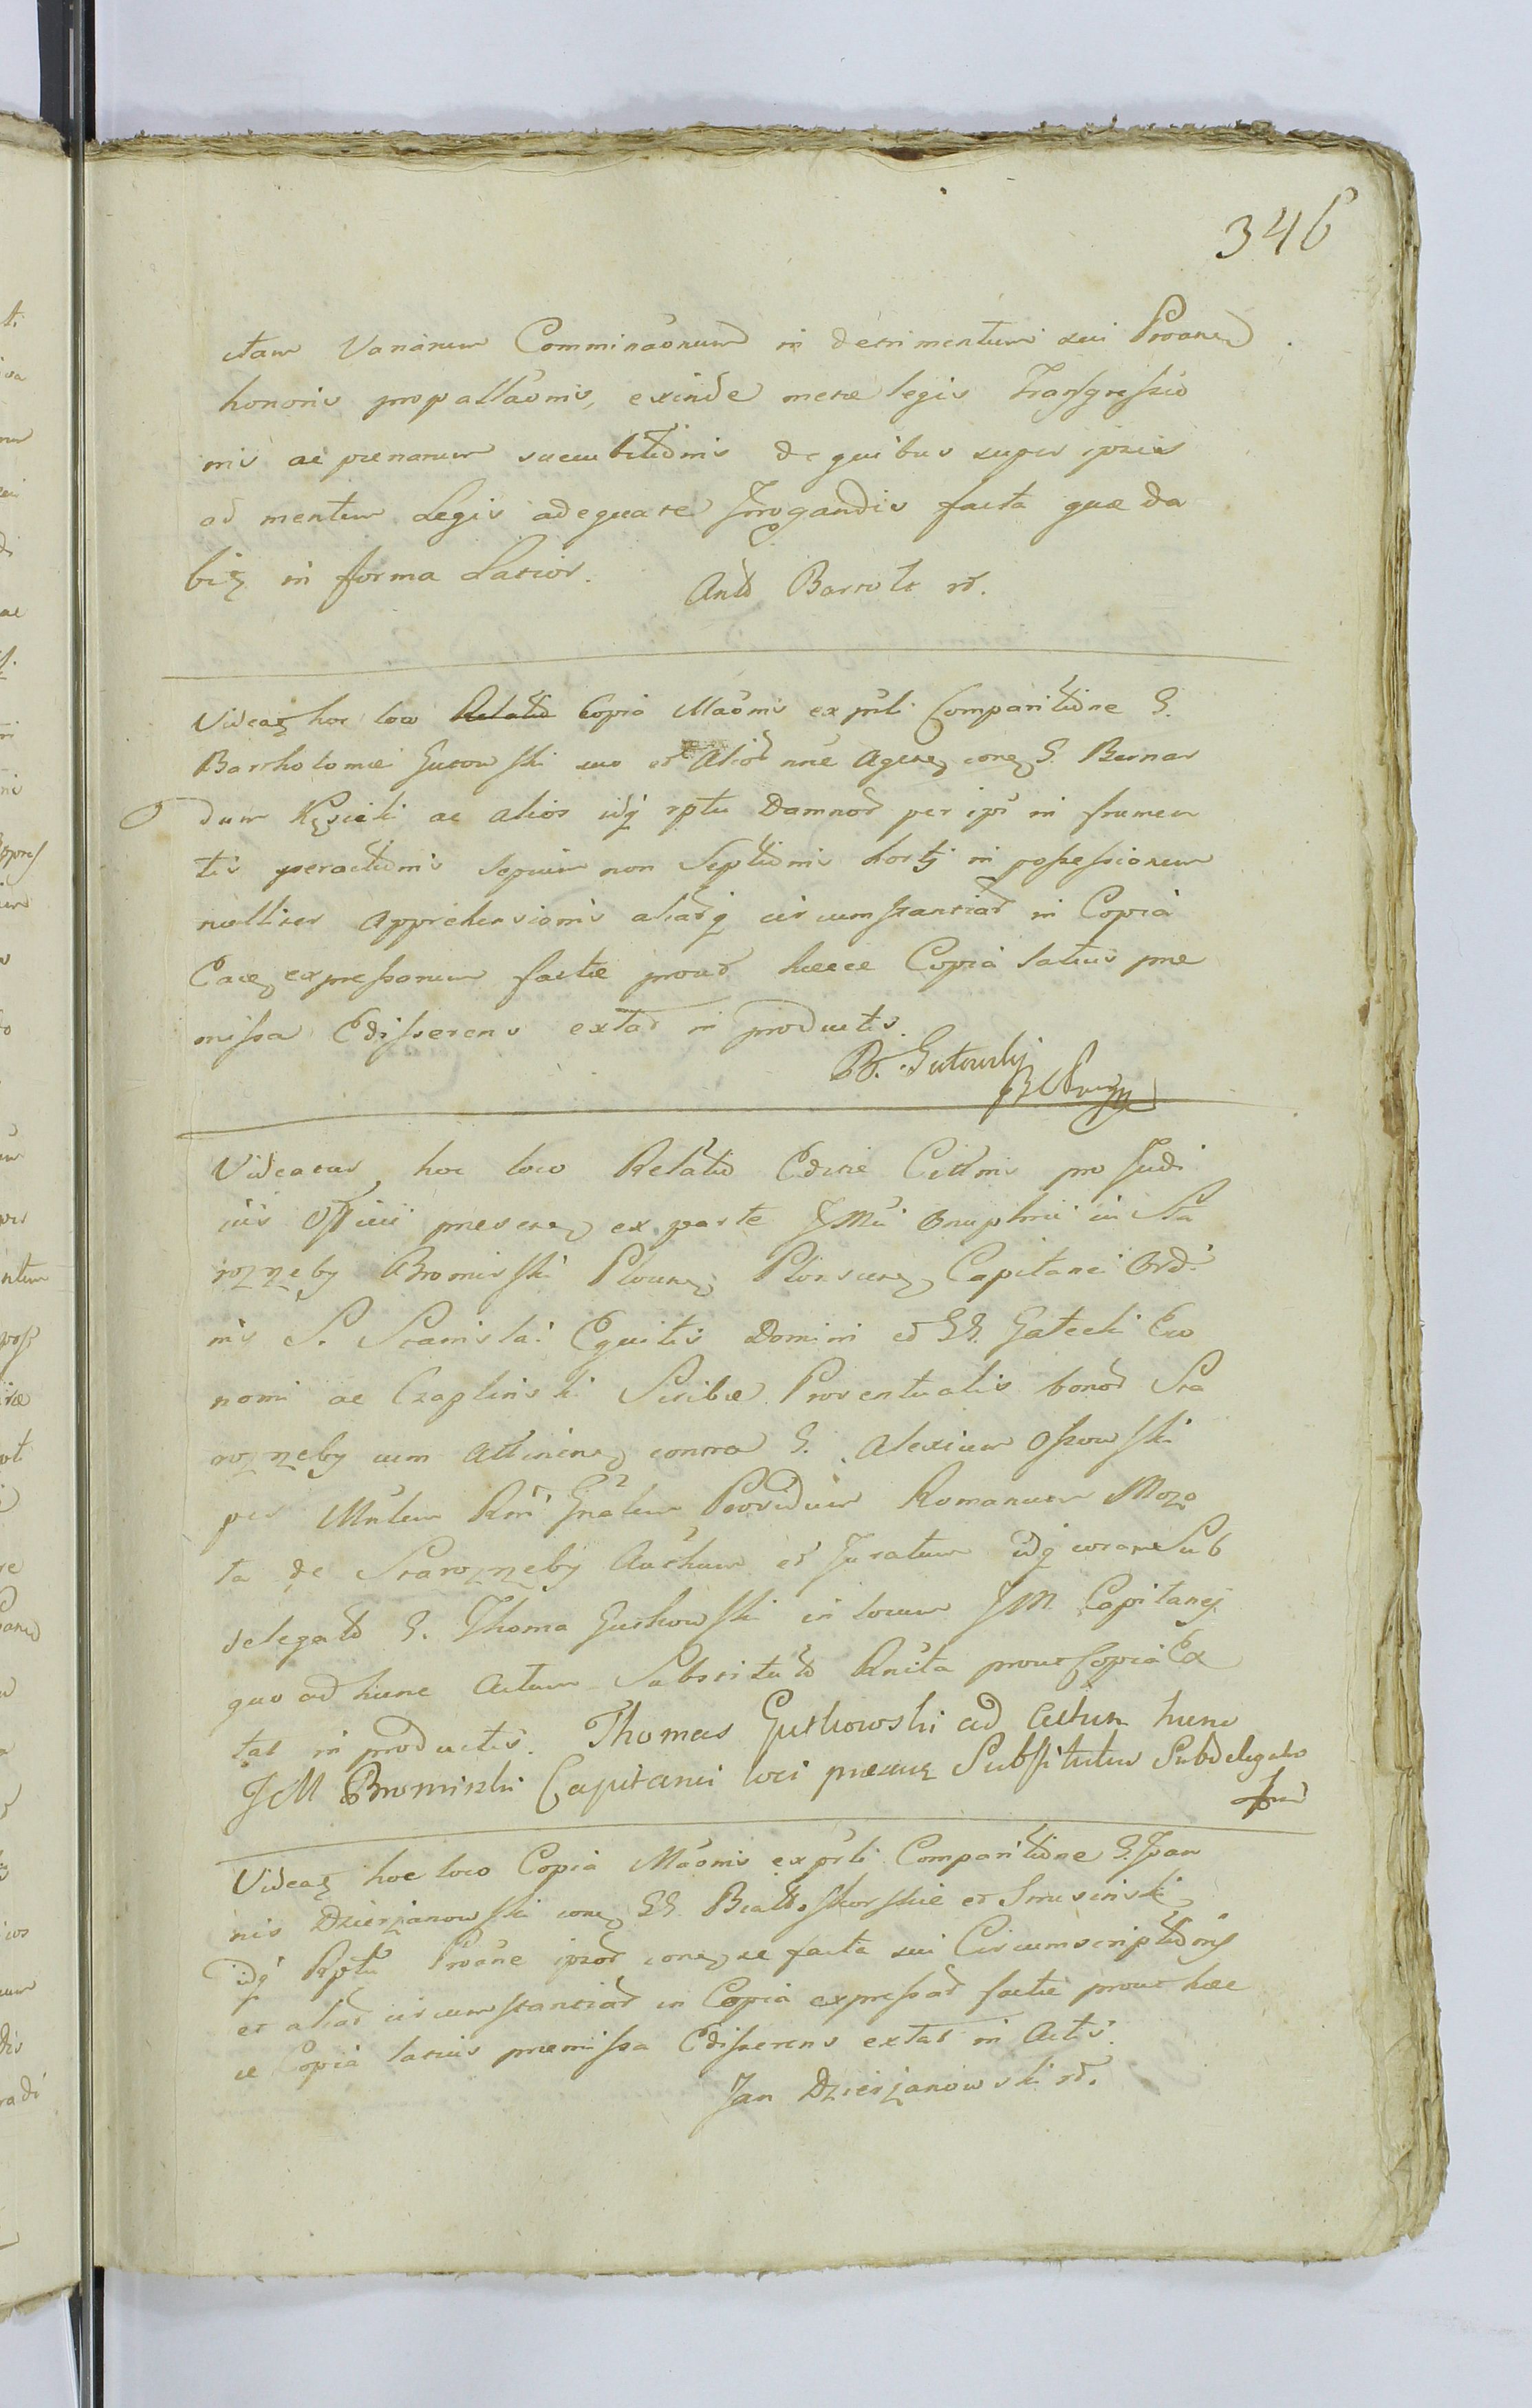 346
itam Variarum Comminaonum in detrimentum sui Proane
honoris propallaonis, exinde meræ legis Transgressio
nis ac pœnarum succubitidnis de quibus super ipsis
ad mentem Legis adequate Irrogandis facta quæ da
biꝫ in forma Latior.
Antó Bartolt
Videaꝫ hoc loco Copia Maonis ex prsti Comparitidne G.
Bartholomæi Gutowski suo et Aliod nne Ageneꝫ cone G. Bernar
dum Kęsicki ac alios idq rptu Damnod per ips in frumen
tis peractidnis sepium non Septidnis hortj in possessionem
nulliter Apprehensionis aliadq circumstantiad in Copia
Eaceꝫ expressorum factæ prout hæce Copia latius præ
missa Edisserens extat in productis.
B. Gutowskj
Videatur hoc loco Relatio Edicti Cittnis pro Judi
ciis Officii præsene ex parte JMci Onuphrii in Sta
rozręby Bromirski Plocene Plonscene Capitanei Ordi
nis S. Stanislai Equitis Domini et GG. Gatecki Eco
nomi ac Czaplinski Scribæ Proventualis bonod Sta
rozręby cum Attinine contra G. Alexium Ossowski
per Mnlem Rni Gnalem Providum Romanum Mozo
ta de Starozręby Authum et Juratum idq coram Sub
delegato G. Thoma Gutkowski in locum JM. Capitanej
quo ad hunc Actum Substituto Rnita prout Copia Ex
tat in productis. Thomas Gutkowski ad Actum hunc
JM Bromirski Capitanei loci præsnꝫ Substitutus Subdelegato
Videaꝫ hoc loco Copia Maonis ex prsti Comparitidne G. Joan
nis Dzierżanowski cone GG. Białoskorskie et Smusinski
idq Rptu Proane ipsod cone se facta sui Circumscriptidnis
et aliad circumstantiad in Copia expressad factæ prout hæc
ce Copia latius præmissa Edisserens extat in Actis.
Jan Dzierżanowski